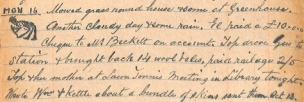 MON 16. Mowed grass round house & some at Greenhouse.
Another Cloudy day & some rain. El paid a £10-0-0
Cheque to Mr Beckett on account. Top drove Geo to
station & brought back 14 wool felts, paid railage 2/5
Top & her mother at Lawn Tennis Meeting in Library tonight
Wrote Wm & Kettle about a bundle of skins sent them Oct 13.